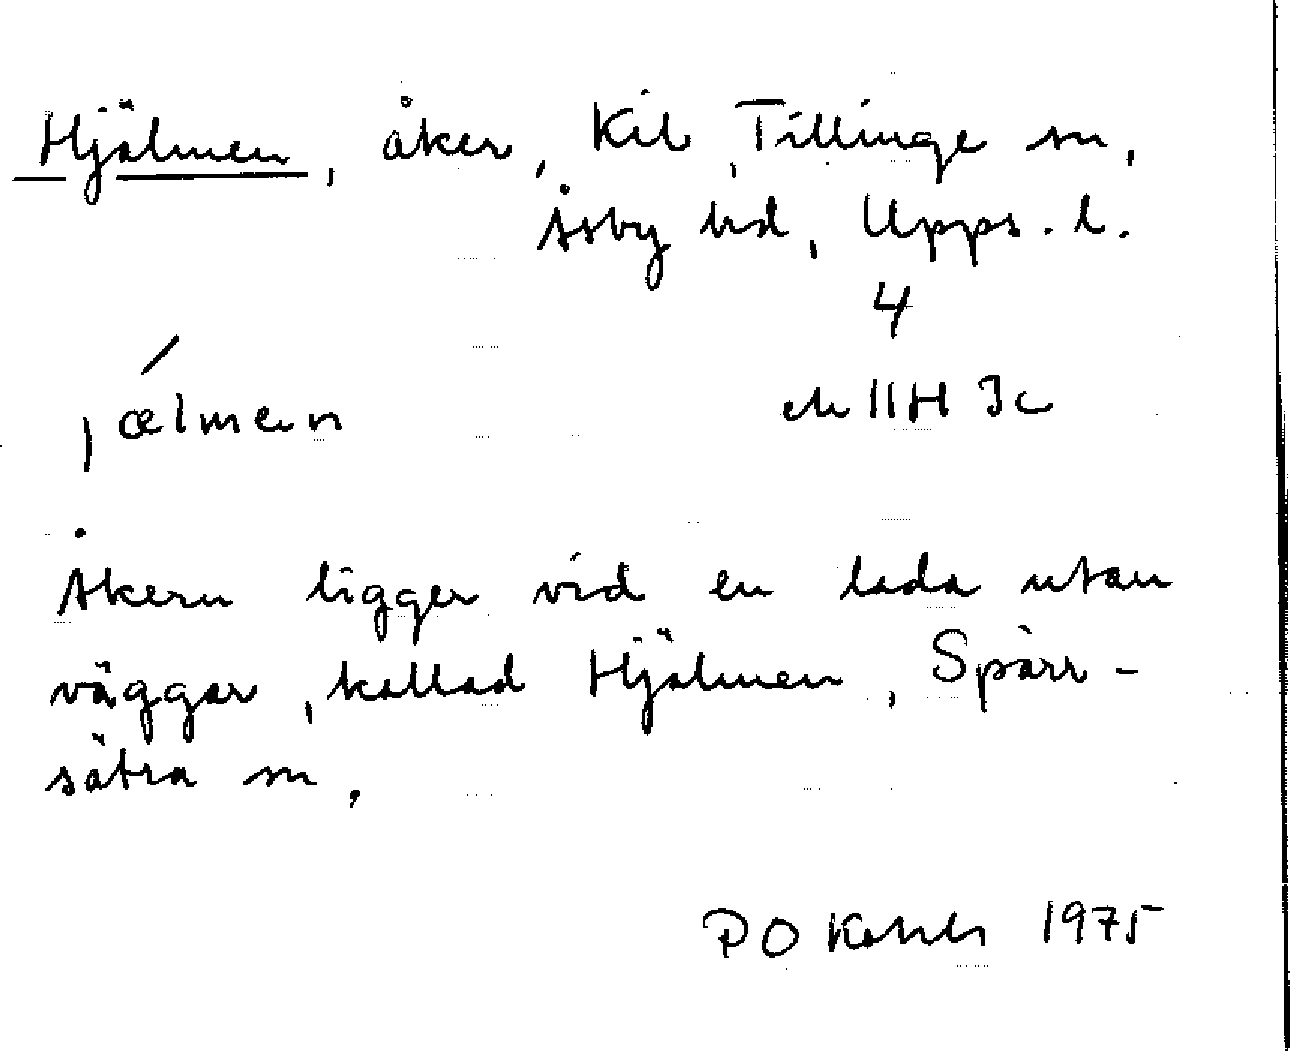 Hjälmen, åker, Kil, Tillinge sn,
Åsby hd, Upps. l.
4
jælmen
11H 3c
Åkern ligger vid en lada utan
väggar, kallad Hjälmen, Sparr-
sätra sn.
PO 1975